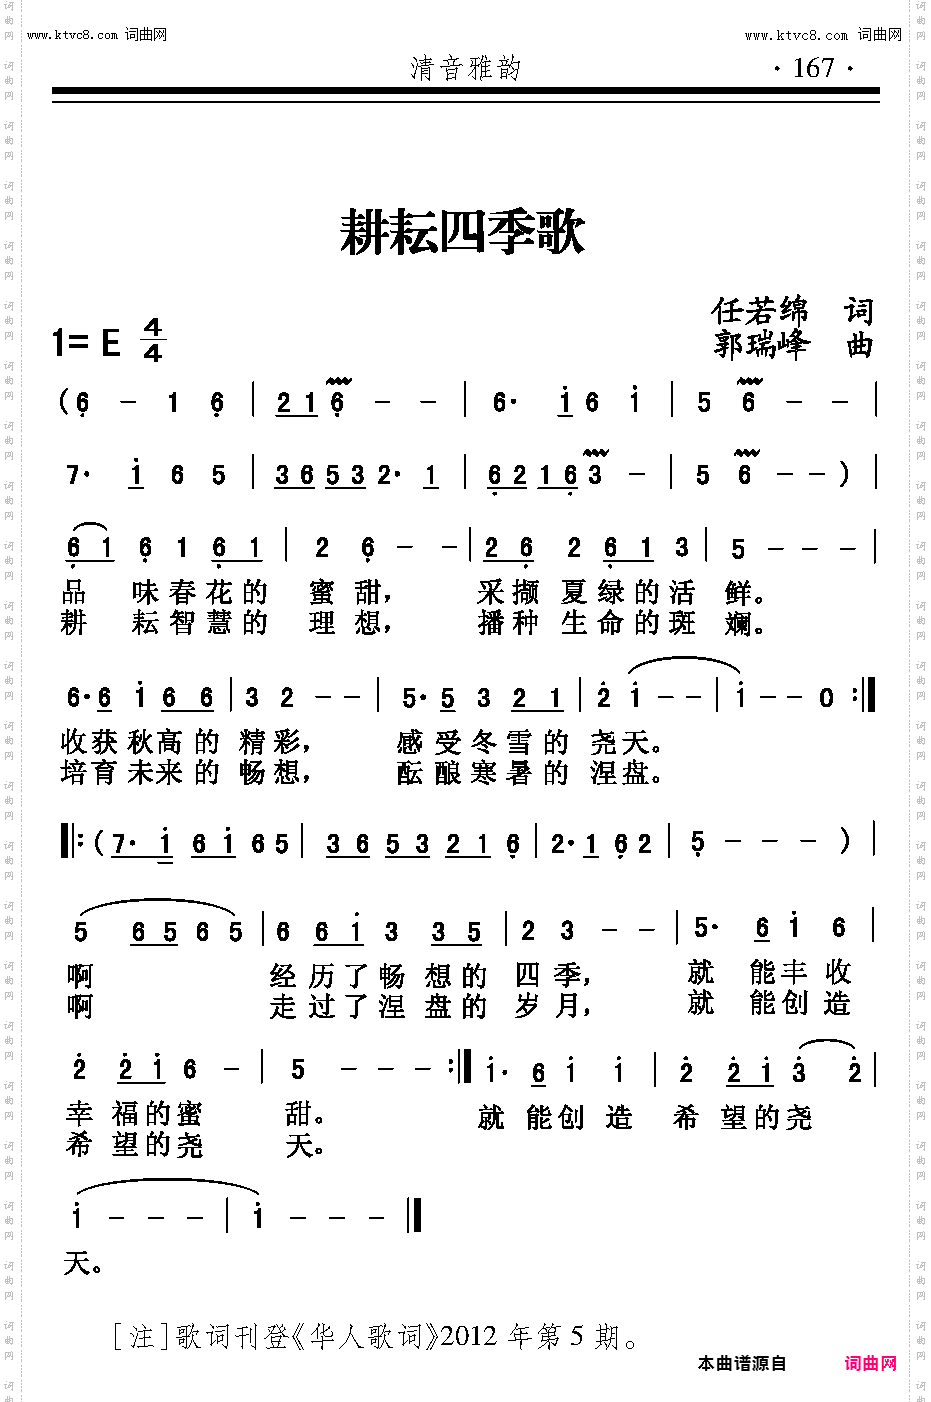 www.ktvc8.com 词曲网 www.ktvc8.com 词曲网
清音雅韵 · 167 ·
耕耘四季歌
任若绵 词
1= E 4/4 郭瑞峰 曲
( 6 - 1 6 | 2 1 6 - - | 6· i 6 i | 5 6 - - |
7· i 6 5 | 3 6 5 3 2· 1 | 6 2 1 6 3 - | 5 6 - - ) |
6 1 6 1 6 1 | 2 6 - - | 2 6 2 6 1 3 | 5 - - - |
品 味春花的 蜜甜， 采撷 夏绿的活 鲜。
耕 耘智慧的 理想， 播种 生命的斑 斓。
6·6 i 6 6 | 3 2 - - | 5·5 3 2 1 | 2 i - - | i - - 0 :‖
收获秋高的 精彩， 感受冬雪的 尧天。
培育未来的 畅想， 酝酿寒暑的 涅盘。
‖: ( 7· i 6 i 6 5 | 3 6 5 3 2 1 6 | 2·1 6 2 | 5 - - - ) |
5 6 5 6 5 | 6 6 i 3 3 5 | 2 3 - - | 5· 6 i 6 |
啊 经历了畅 想的 四季， 就 能丰收
啊 走过了涅 盘的 岁月， 就 能创造
2 2 i 6 - | 5 - - - :‖ i· 6 i i | 2 2 i 3 2 |
幸 福的蜜 甜。 就 能创造 希 望的尧
希 望的尧 天。
i - - - | i - - - ‖
天。
[注]歌词刊登《华人歌词》2012 年第 5 期。
本曲谱源自 词曲网